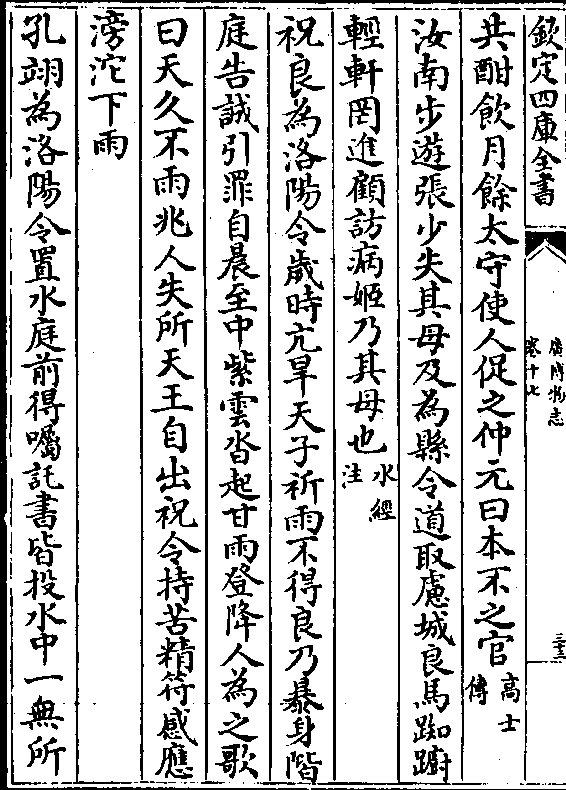 欽定四庫全書
廣博物志
卷十七
三十三
共酣飲月餘太守使人促之仲元曰本不之官高士傳
汝南步遊張少失其母及為縣令道取慮城良馬踟躕
輕軒罔進顧訪病姬乃其母也水經注
祝良為洛陽令歲時亢旱天子祈雨不得良乃暴身階
庭告誠引罪自晨至中紫雲沓起甘雨登降人為之歌
曰天久不雨兆人失所天王自出祝令持苦精符感應
滂沱下雨
孔翊為洛陽令置水庭前得囑託書皆投水中一無所